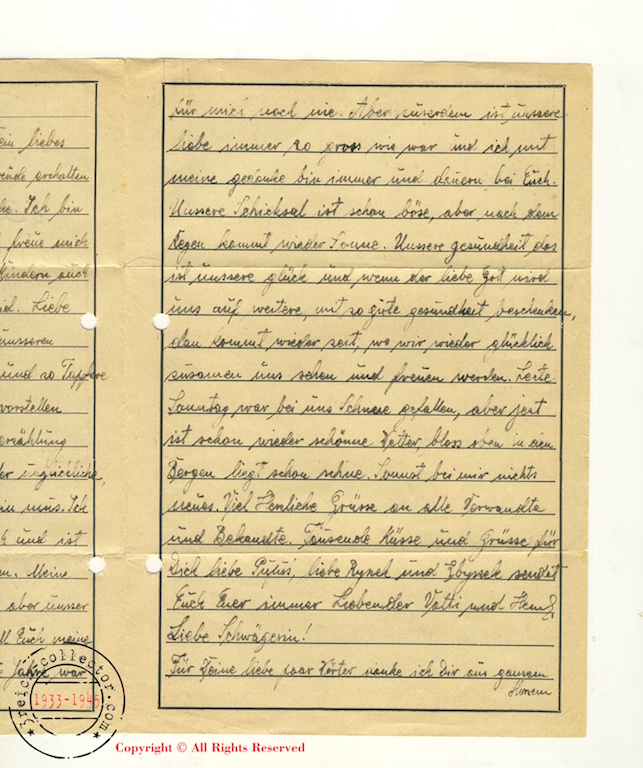 ein liebes
ende erhalten
he. Ich bin
freue mich
Kindern auch
nd. Liebe
unseren
und so Tapfere
vorstellen
erzählung
der unglückliche,
in muss. Ich
h und ist
en. Meine
aber unser
ll Euch meine
Jahre war
für mich noch nie. Aber auserdem ist unssere
liebe immer so gross wie war und ich mit
meine gedanke bin immer und dauern bei Euch.
Unssere Schicksal ist schon böse, aber nach dem
Regen kommt wieder Sonne. Unssere gesundheit das
ist unssere glück und wenn der liebe Gott wird
uns auf weitere, mit so gute gesundheit beschenken,
dan kommt wieder zeit, wo wir wieder glücklich
zusamen uns sehen und freuen werden. Lezte
Sonntag war bei uns Schnee gefallen, aber jezt
ist schon wieder schönne Wetter, bloss oben in den
Bergen liegt schon schne. Sonnst bei mir nichts
neues. Viel Herzliche Grüsse an alle Verwandte
und Bekandte. Tausende Küsse und Grüsse für
Dich liebe liebe Rysiek und Zbyssek sendet
Euch Euer immer Liebender Vatti und
Liebe Schwägerin!
Für Deine liebe paar Wörter danke ich Dir aus ganzem
Herzen
3reich-collector.com
1933-1945
Copyright © All Rights Reserved